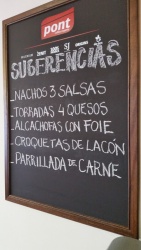 pont
SUGERENCIAS
_NACHOS 3 SALSAS
_TORRADAS 4 QUESOS
_ALCACHOFAS CON FOIE
_CROQUETAS DE LACÓN
_PARRILLADA DE CARNE